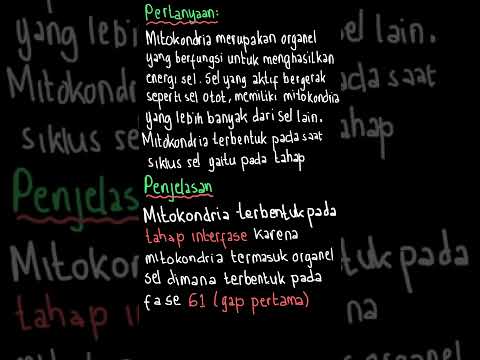 Pertanyaan:
Mitokondria merupakan organel
yang berfungsi untuk menghasilkan
energi sel. Sel yang aktif bergerak
seperti sel otot, memiliki mitokondria
yang lebih banyak dari sel lain.
Mitokondria terbentuk pada saat
siklus sel yaitu pada tahap
Penjelasan
Mitokondria terbentuk pada
tahap interfase karena
mitokondria termasuk organel
sel dimana terbentuk pada
fase G1 (gap pertama)